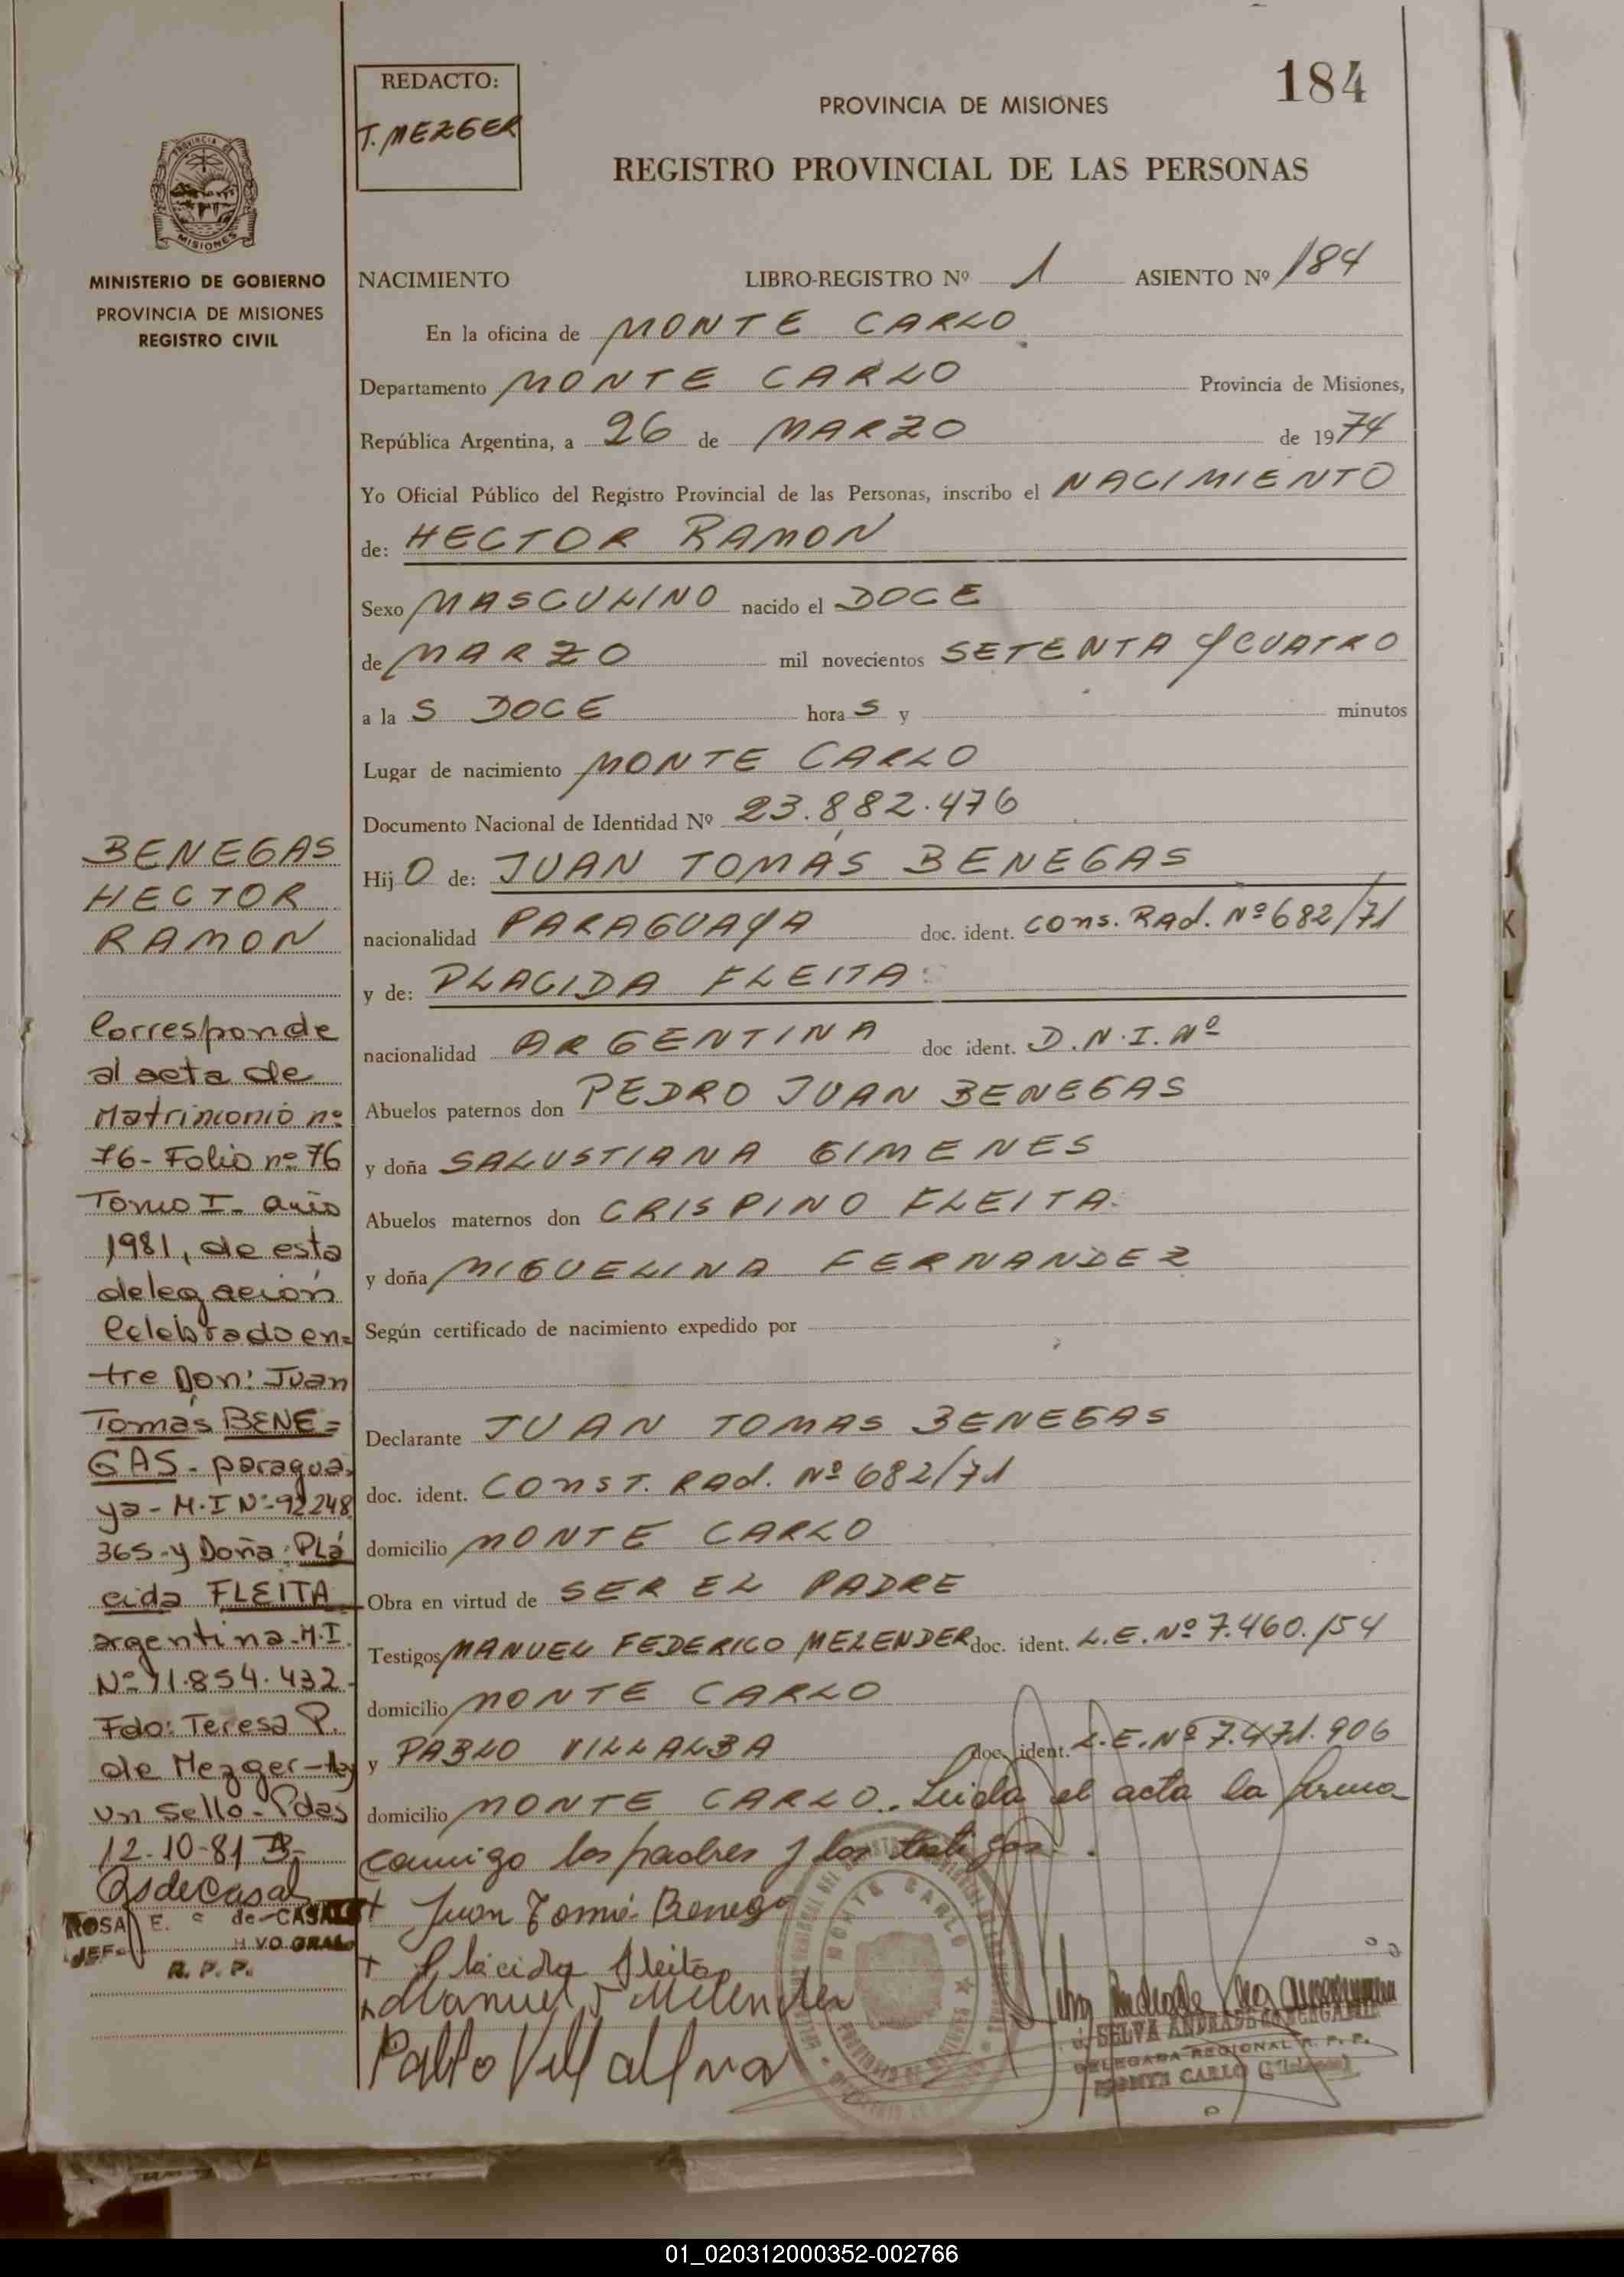 184
REDACTO:
T. MEZGER
PROVINCIA DE MISIONES
REGISTRO PROVINCIAL DE LAS PERSONAS
PROVINCIA DE
MISIONES
MINISTERIO DE GOBIERNO
PROVINCIA DE MISIONES
REGISTRO CIVIL
NACIMIENTO LIBRO-REGISTRO Nº 1 ASIENTO Nº 184
En la oficina de MONTE CARLO
Departamento MONTE CARLO Provincia de Misiones,
República Argentina, a 26 de MARZO de 1974
Yo Oficial Público del Registro Provincial de las Personas, inscribo el NACIMIENTO
de: HECTOR RAMON
Sexo MASCULINO nacido el DOCE
de MARZO mil novecientos SETENTA Y CUATRO
a la S DOCE hora S y minutos
Lugar de nacimiento MONTE CARLO
Documento Nacional de Identidad Nº 23.882.476
Hij O de: JUAN TOMÁS BENEGAS
nacionalidad PARAGUAYA doc. ident. Cons. Rad. Nº 682/71
y de: PLACIDA FLEITA
nacionalidad ARGENTINA doc ident. D.N.I. Nº
Abuelos paternos don PEDRO JUAN BENEGAS
y doña SALUSTIANA GIMENES
Abuelos maternos don CRISPINO FLEITA.
y doña MIGUELINA FERNANDEZ
Según certificado de nacimiento expedido por
Declarante JUAN TOMAS BENEGAS
doc. ident. CONST. Rad. Nº 682/71
domicilio MONTE CARLO
Obra en virtud de SER EL PADRE
Testigos MANUEL FEDERICO MELENDER doc. ident. L.E. Nº 7.460.154
domicilio MONTE CARLO
y PABLO VILLALBA doc. ident. L.E. Nº 7.471.906
domicilio MONTE CARLO. Leida el acta la firma
conmigo los padres y los testigos.
+ Juan Tomás Benega
+ Plácida Fleita
Manuel F Melender
Pablo Villalva
MONTE CARLO
SELVA ANDRADE
DELEGADA REGIONAL R. P. P.
MONTE CARLO (Misiones)
BENEGAS
HECTOR
RAMON
Corresponde
al acta de
Matrimonio nº
76- Folio nº 76
Tomo I- año
1981, de esta
delegación
Celebrado en=
tre Don: Juan
Tomás BENE=
GAS- paragua
ya- M.I Nº-92248
365-y Doña: Plá
cida FLEITA
argentina-M.I.
Nº 11.854.432-
Fdo: Teresa P.
de Mezger-Hay
un sello- Pdas
12-10-81
ROSA E. de CASAL
JEF
R. P. P.
J
K
L
01_020312000352-002766